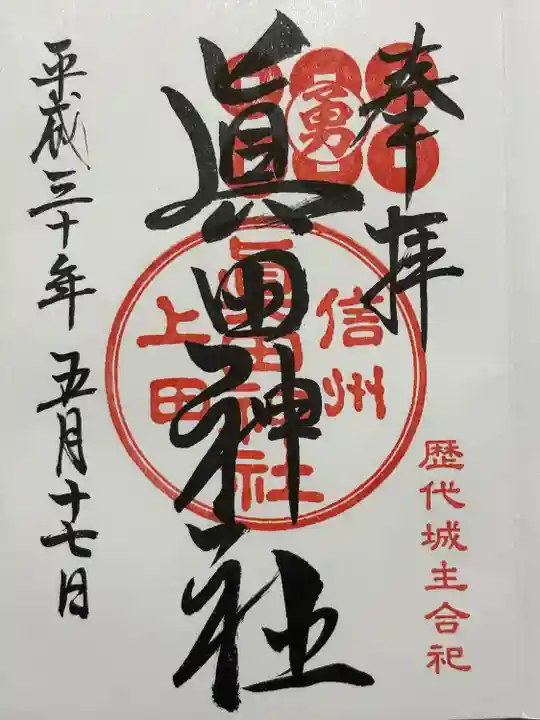 奉拝
歴代城主合祀
勇
信州
眞田神社
上田
眞田神社
平成三十年五月十七日